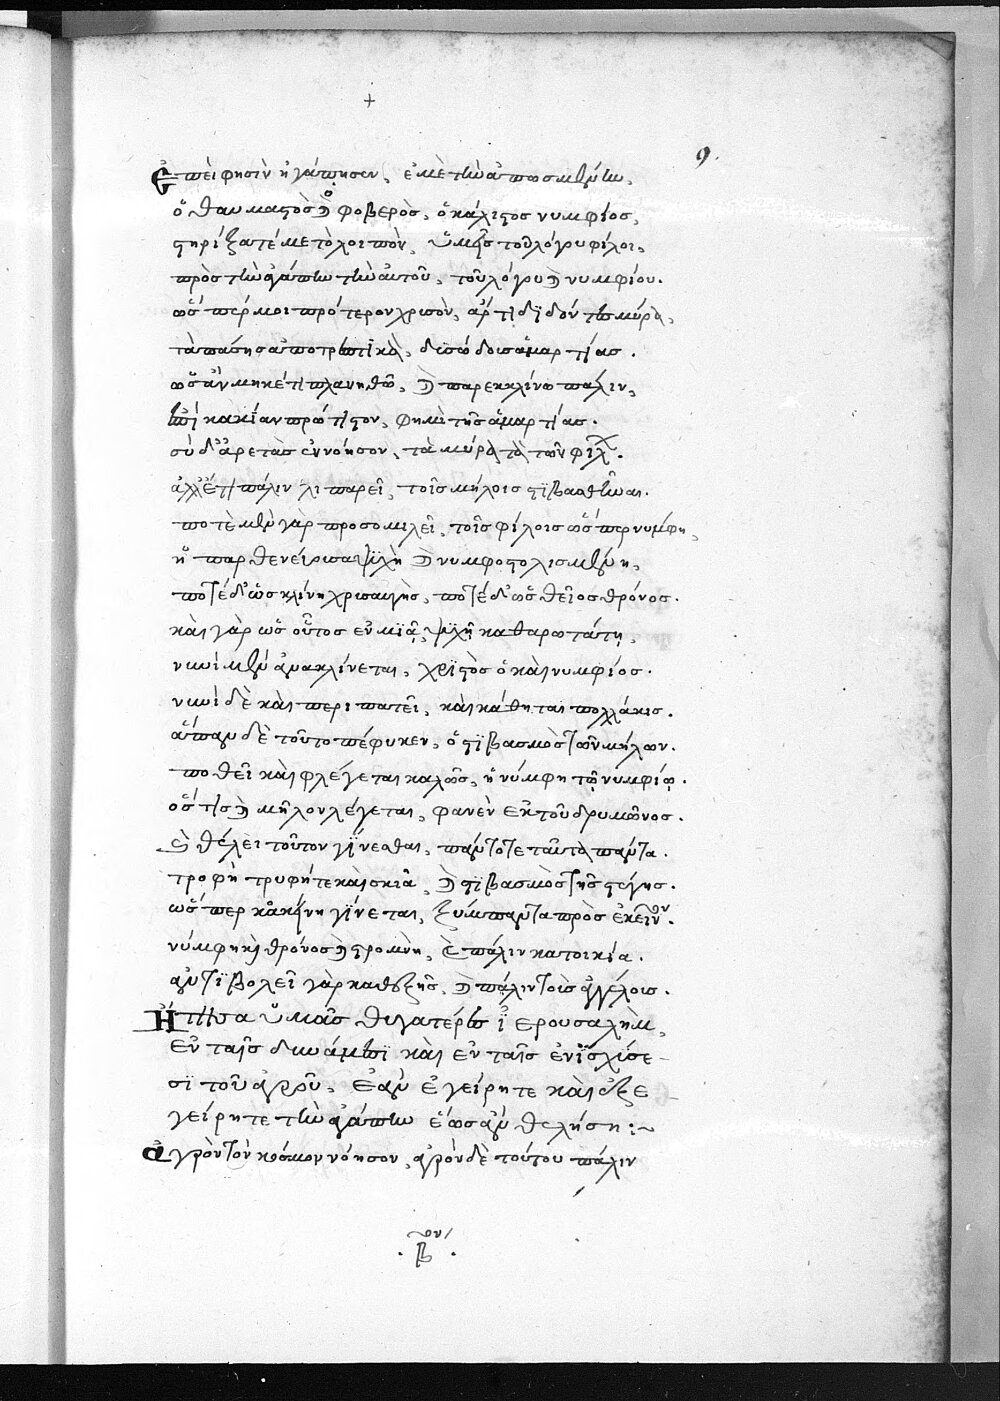 +
9.
Ἐπεί φησὶν ἠγάπησεν, ἐμὲ τὴν ἀπωσμένην,
ὁ θαυμαστὸς καὶ ὁ φοβερὸς, ὁ κάλιστος νυμφίος,
στηρίξατέ με τὸ λοιπὸν, ὑμεῖς τοῦ λόγου φίλοι,
πρὸς τὴν ἀγάπην τὴν αὐτοῦ, τοῦ λόγου καὶ νυμφίου.
ὥσπέρ μοι πρότερον χρισὸν, ἄρτι διδόντες μύρα,
τὰ πάσης ἀποτρεπτικὰ, δισώδοις ἁμαρτίας.
ὡς ἂν μηκέτι πλανηθῶ, καὶ παρεκκλίνω πάλιν,
ἐπὶ κακίαν πρώτιστον, φημὶ τῆς ἁμαρτίας.
σὺ δ' ἀρετὰς ἐννόησον, τὰ μύρα τὰ τῶν φίλ.
ἀλλ' ἔτι πάλιν λιπαρεῖ, τοῖς μήλοις στιβασθῆναι.
ποτὲ μὲν γὰρ προσομιλεῖ, τοῖς φίλοις ὥσπερ νύμφη,
ἢ παρθενεύουσα ψυχὴ καὶ νυμφοστολισμένη,
ποτὲ δ' ὡς κλίνη χρισαυγὴς, ποτὲ δ' ὡς θεῖος θρόνος.
καὶ γὰρ ὡς οὗτος ἐν μιᾷ, ψυχῇ καθαρωτάτῃ,
νυνὶ μὲν ἀνακλίνεται, χριστὸς ὁ καὶ νυμφίος.
νυνὶ δὲ καὶ περιπατεῖ, καὶ κάθηται πολλάκις.
ἅπαν δὲ τοῦτο πέφυκεν, ὁ στιβασμὸς τῶν μήλων.
ποθεῖ καὶ φλέγεται καλῶς, ἡ νύμφη τῷ νυμφίῳ.
ὅστις καὶ μῆλον λέγεται, φανὲν ἐκ τοῦ δρυμῶνος.
καὶ θέλει τοῦτον γίνεσθαι, πάντοτε ταῦτα πάντα.
τροφὴ τρυφή τε καὶ σκιὰ, καὶ στιβασμὸς τῆς στέγης.
ὥσπερ κἀκείνη γίνεται, ξύμπαντα πρὸς ἐκεῖνον.
νύμφη καὶ θρόνος καὶ στρομνὴ, καὶ πάλιν κατοικία.
ἀντιβολεῖ γὰρ καθεξῆς, καὶ πάλιν τοῖς ἀγγέλοις.
Ἤτησα ὑμᾶς θυγατέρες ἱερουσαλὴμ,
ἐν ταῖς δυνάμεσι καὶ ἐν ταῖς ἐνισχύσε-
σι τοῦ ἀγροῦ, ἐὰν ἐγείρητε καὶ ἐξε
γείρητε τὴν ἀγάπην ἕως ἂν θελήση:~
Ἀγρὸν τὸν κόσμον νόησον, ἀγρὸν δὲ τούτου πάλιν
.βον.